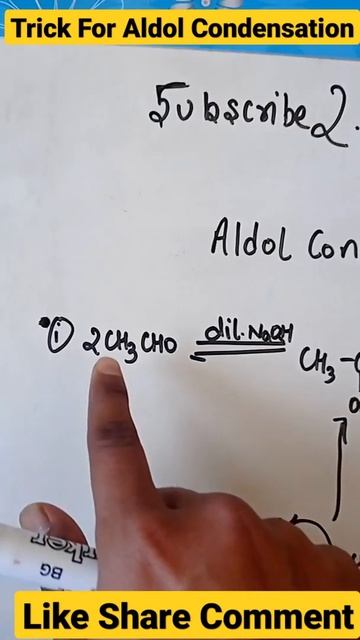 Trick For Aldol Condensation
Subscribe 2.
Aldol Con
① 2CH₃CHO dil. NaOH CH₃-C
O
BG
Like Share Comment